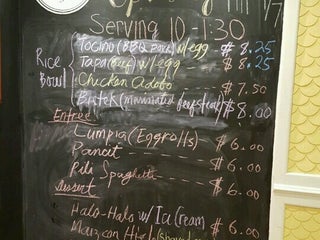 Serving 10-1:30
Rice Bowl
Tocino (BBQ Pork) w/egg $8.25
Tapa (Beef) w/egg $8.25
Chicken Adobo $7.50
Bistek (marinated beef steak) $8.00
Entree
Lumpia (Eggrolls) $6.00
Pancit $6.00
Spaghetti $6.00
Dessert
Halo-Halo w/ Ice Cream $6.00